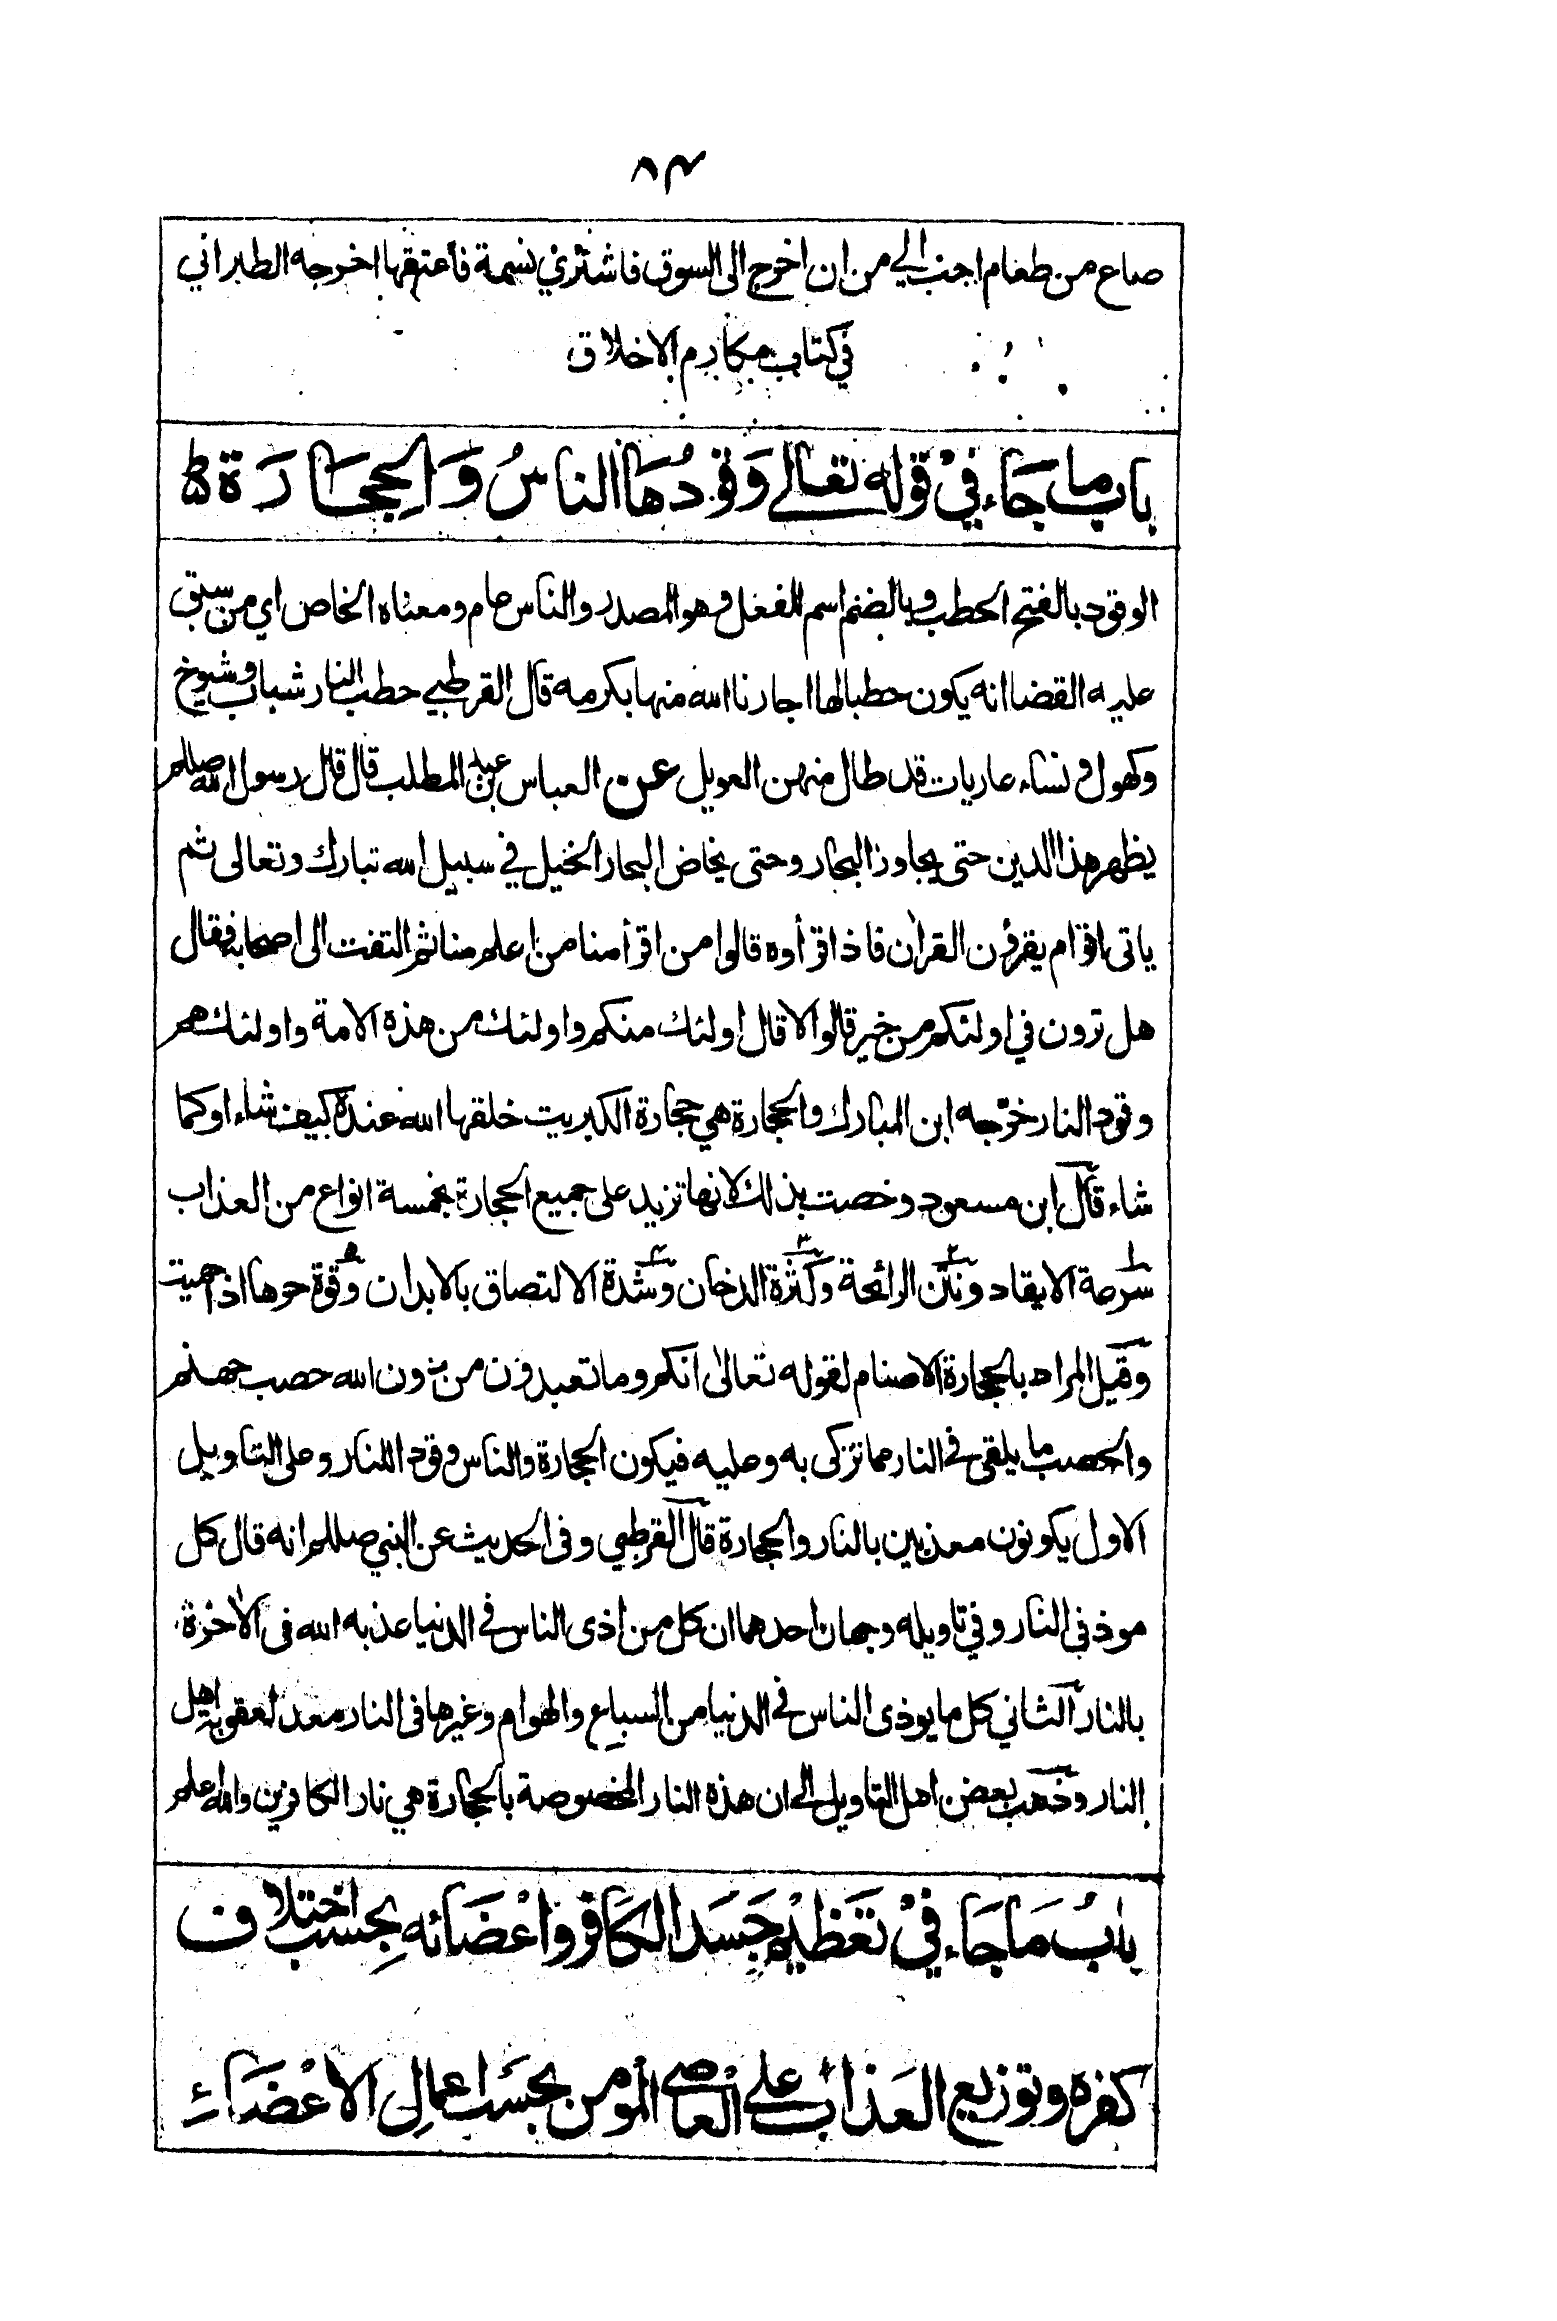 ٨٣
صاع من طعام احب الي من ان اخرج الى السوق فاشتري نسمة فأعتقها اخرجه الطبراني
في كتاب مكارم الاخلاق
باب ما جاء في قوله تعالى وَقُودُهَا الناسُ وَالحِجَارَة
الوقود بالفتح الحطب وبالضم اسم للفعل وهو المصدر والناس عام ومعناه الخاص اي من سبق
عليه القضا انه يكون حطبا لها اجارنا الله منها بكرمه قال القرطبي حطب النار شباب وشيوخ
وكهول ونساء عاريات قد طال منهن العويل عن العباس بن عبد المطلب قال قال رسول الله صللم
يظهر هذا الدين حتى يجاوز البحار وحتى يخاض البحار الخيل في سبيل الله تبارك وتعالى ثم
ياتى اقوام يقرؤن القران فاذا قرأوه قالوا من اقرأ منا من اعلم منا ثم التفت الى اصحابه فقال
هل ترون في اولئكم من خير قالوا لا قال اولئك منكم واولئك من هذه الامة واولئك هم
وقود النار خرّجه ابن المبارك والحجارة هي حجارة الكبريت خلقها الله عنده كيف شاء او كما
شاء قال ابن مسعود وخصت بذلك لانها تزيد على جميع الحجارة بخمسة انواع من العذاب
سرعة الايقاد ونتن الرائحة وكثرة الدخان وشدة الالتصاق بالابدان وقوة حرها اذا حميت
وقيل المراد بالحجارة الاصنام لقوله تعالى انكم وما تعبدون من دون الله حصب جهنم
والحصب ما يلقى في النار مما تزكى به وعليه فيكون الحجارة والناس وقودا للنار وعلى التاويل
الاول يكونون معذبين بالنار والحجارة قال القرطبي وفى الحديث عن النبي صللم انه قال كل
موذ فى النار وفي تاويله وجهان احدهما ان كل من اذى الناس في الدنيا عذبه الله فى الاخرة
بالنار الثاني كل ما يوذى الناس في الدنيا من السباع والهوام وغيرها فى النار معد لعقوبة اهل
النار وذهب بعض اهل التاويل الى ان هذه النار المخصوصة بالحجارة هي نار الكافرين والله اعلم
بابُ مَا جَاء في تَعَظيم جَسَد الكَافر وَاعْضَائه بِحسب اختلاف
كفره وتوزيع العَذاب على العاصى المومن بحَسَب اعمالِ الاعْضَاءِ